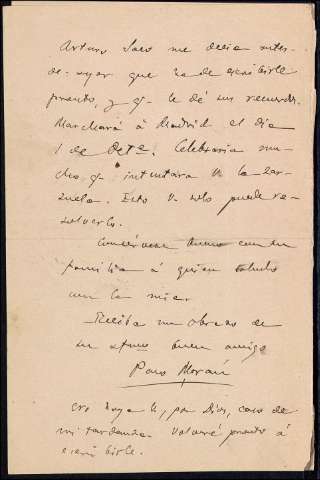 Arturo Saco me decia antes-
de-ayer que ha de escribirle
pronto, y q. le dé sus recuerdos.
Marchará á Madrid el dia
1 de Oct.e. Celebraria mu-
cho, q. intentara V. la zar-
zuela. Esto V. solo puede re-
solverlo.
Consérvese bueno con su
familia á quien saludo
con la mia.
Reciba un abrazo de
su afmo buen amigo
haga V., por Dios, caso de
mi tardanza. Volveré pronto á
escribirle.